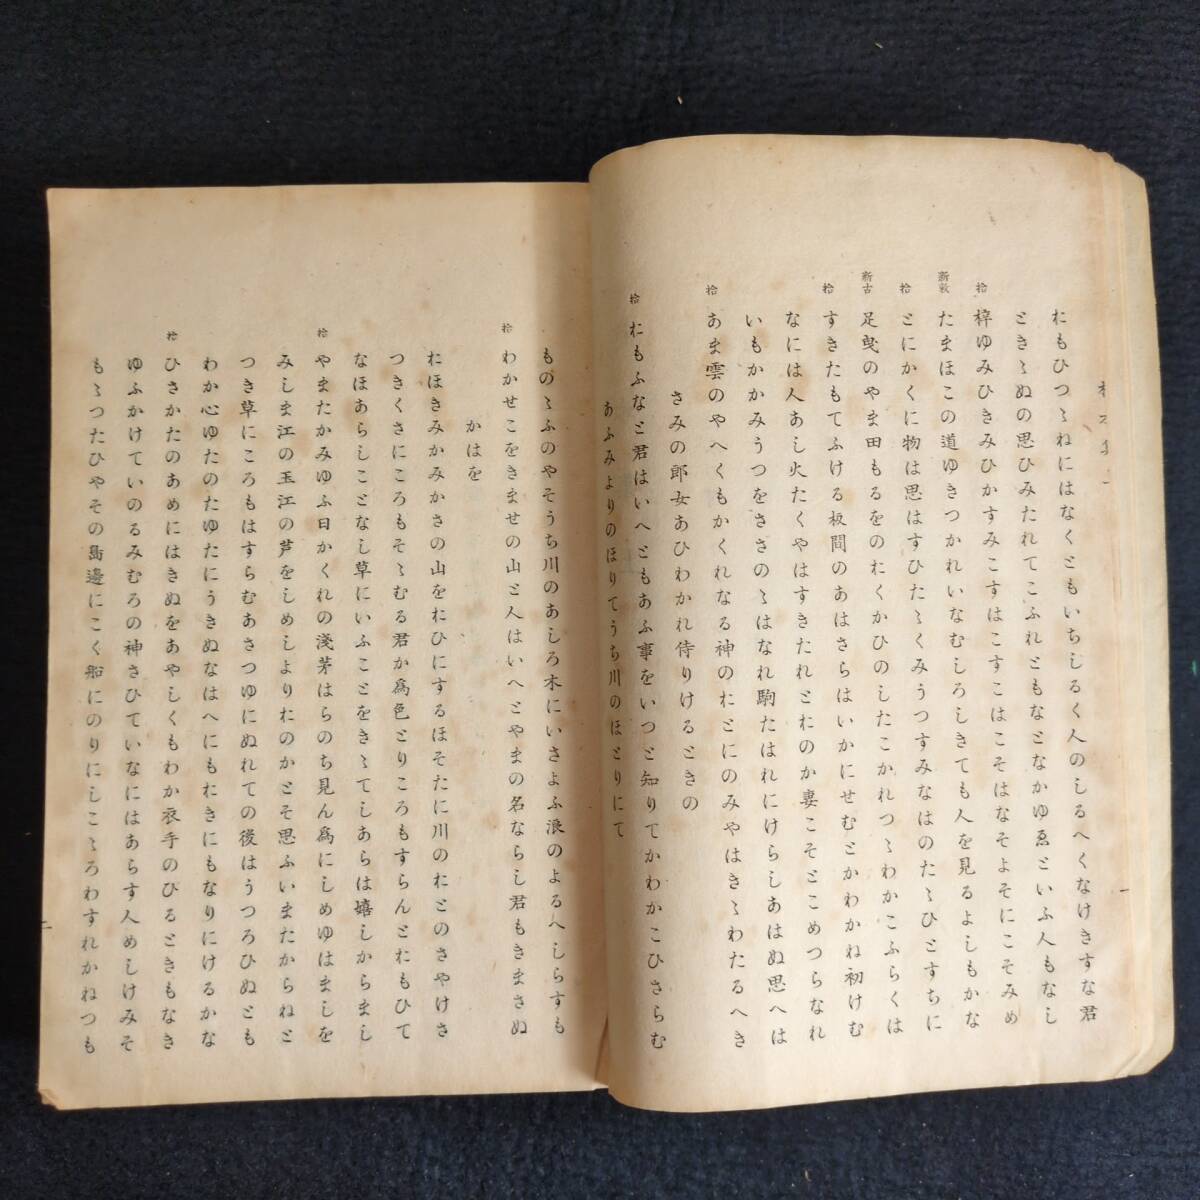 おもひつゝねにはなくともいちしるく人のしるへくなけきすな君
ときゝぬの思ひみたれてこふれともなとなかゆゑといふ人もなし
拾 梓ゆみひきみひかすみこすはこすこはこそはなそよそにこそみめ
新敕 たまほこの道ゆきつかれいなむしろしきても人を見るよしもかな
拾 とにかくに物は思はすひたゝくみうつすみなはのたゝひとすちに
新古 足曳のやま田もるをのおくかひのしたこかれつゝわかこふらくは
拾 すきたもてふける板間のあはさらはいかにせむとかわかね初けむ
なには人あし火たくやはすきたれとおのか妻こそとこめつらなれ
いもかかみうつをささのゝはなれ駒たはれにけらしあはぬ思へは
拾 あま雲のやへくもかくれなる神のおとにのみやはきゝわたるへき
さみの郎女あひわかれ侍りけるときの
拾 おもふなと君はいへともあふ事をいつと知りてかわかこひさらむ
あふみよりのほりてうち川のほとりにて
ものゝふのやそうち川のあしろ木にいさよふ浪のよるへしらすも
拾 わかせこをきませの山と人はいへとやまの名ならし君もきまさぬ
かはを
おほきみかみかさの山をおひにするほそたに川のおとのさやけさ
つきくさにころもそゝむる君か為色とりころもすらんとおもひて
なほあらしことなし草にいふことをきゝてしあらは嬉しからまし
拾 やまたかみゆふ日かくれの淺茅はらのち見ん為にしめゆはましを
みしま江の玉江の芦をしめしよりおのかとそ思ふいまたからねと
つき草にころもはすらむあさつゆにぬれての後はうつろひぬとも
わか心ゆたのたゆたにうきぬなはへにもおきにもなりにけるかな
拾 ひさかたのあめにはきぬをあやしくもわか衣手のひるときもなき
ゆふかけていのるみむろの神さひていなにはあらす人めしけみそ
もゝつたひやその島邊にこく船にのりにしこゝろわすれかねつも